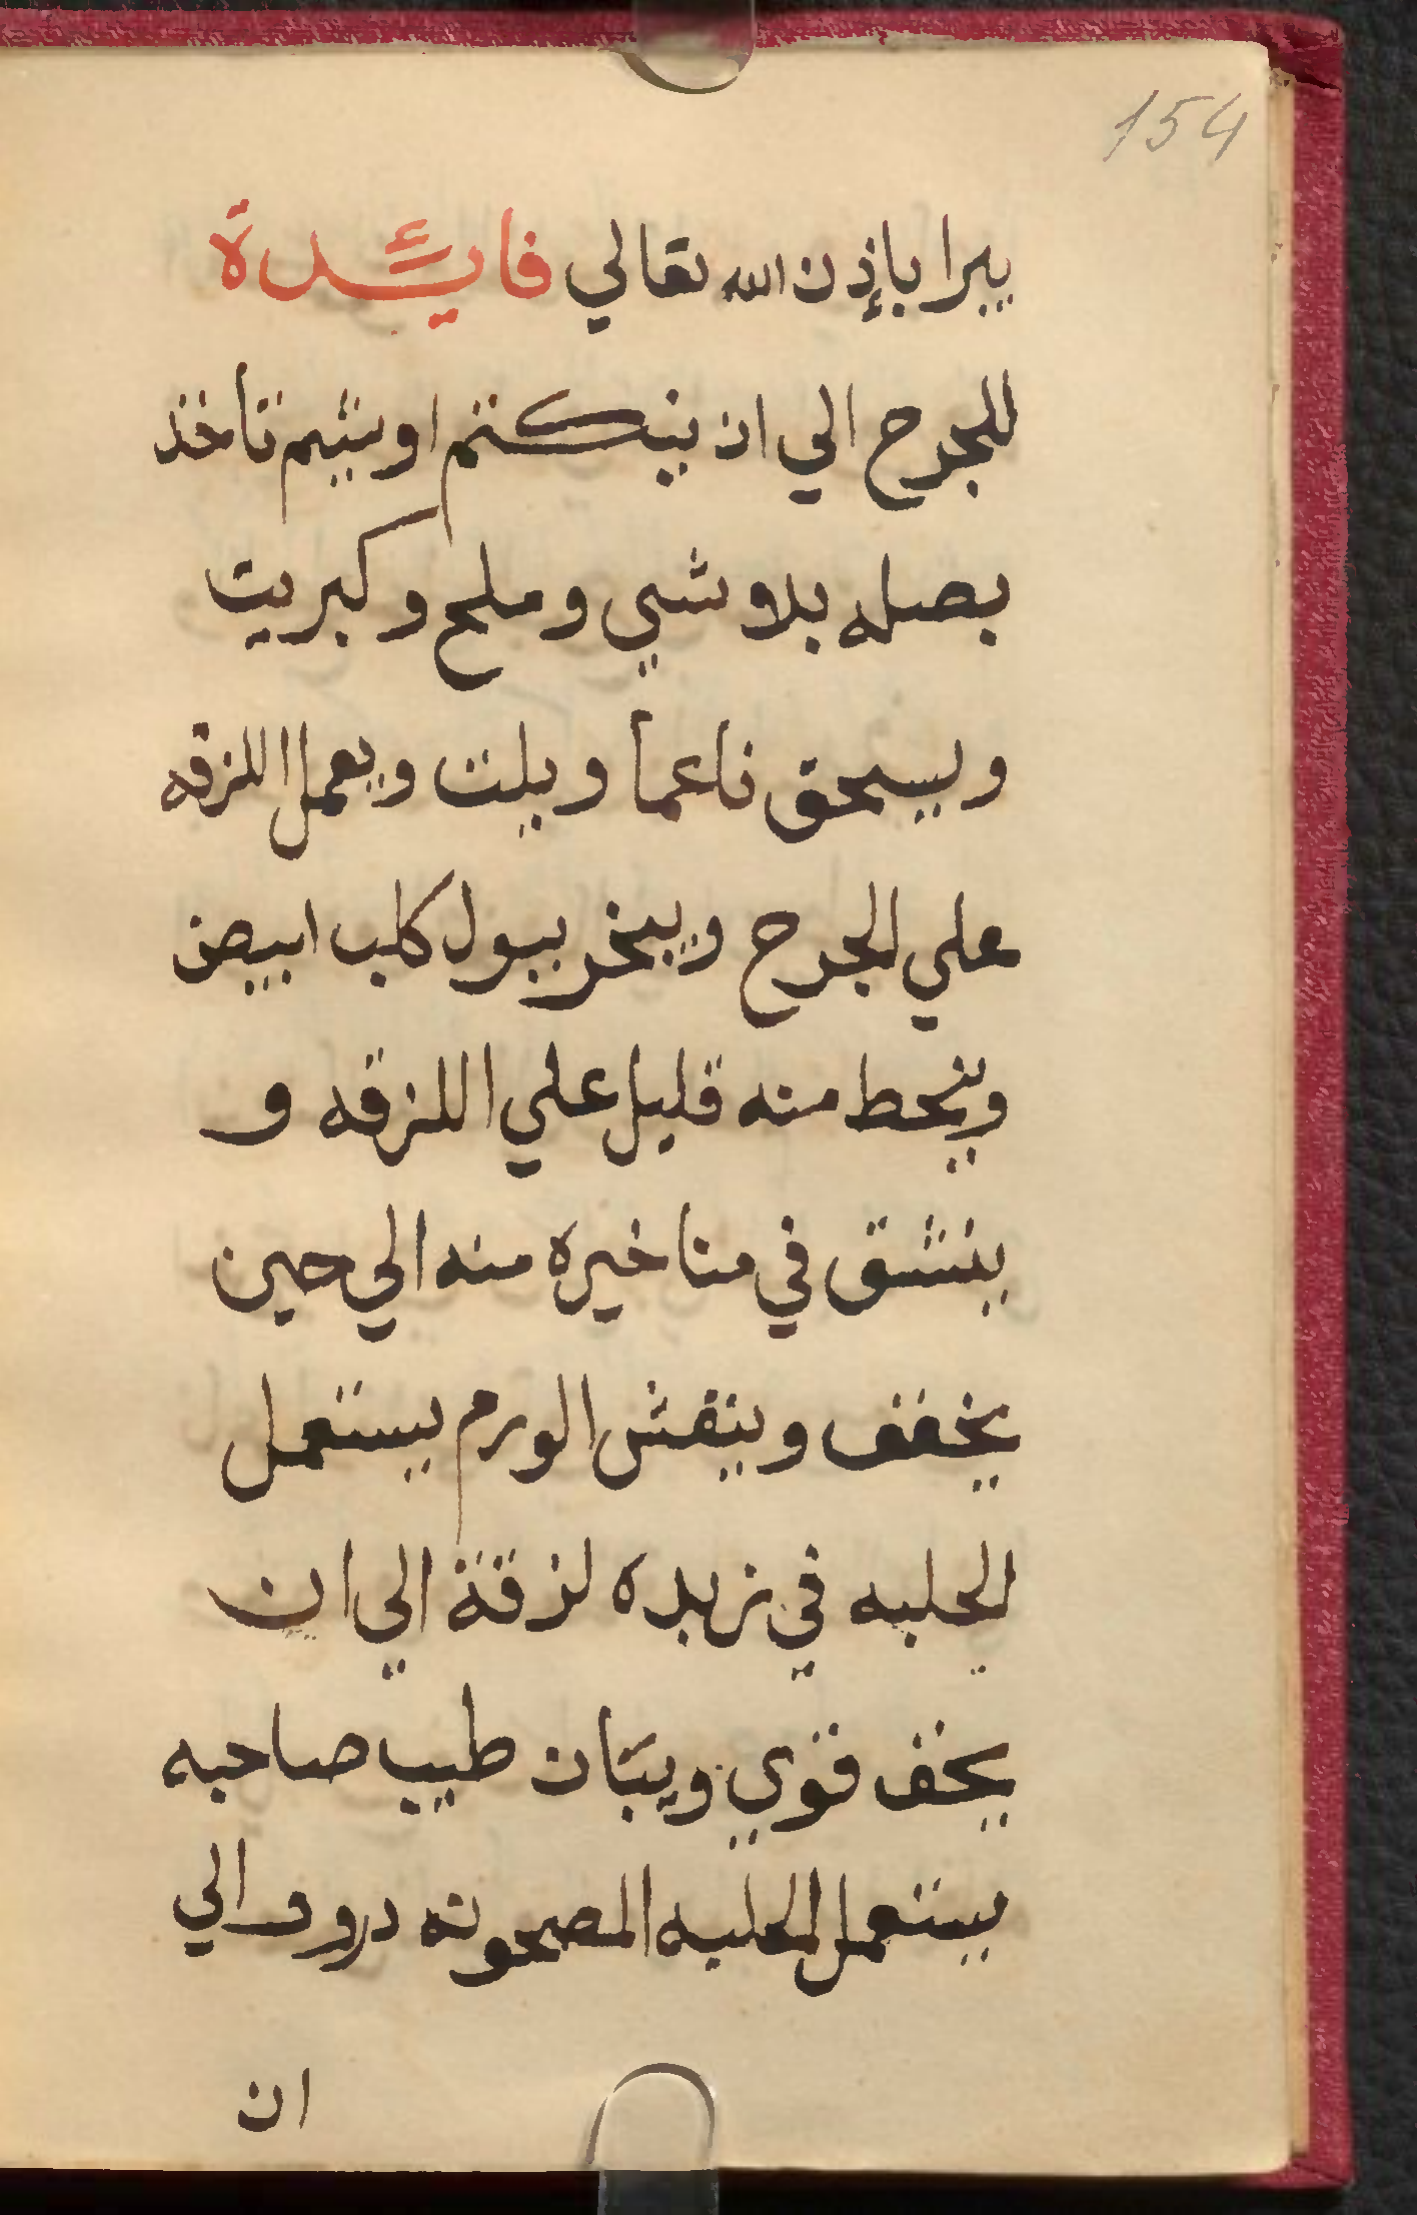 154
يبرا بإذن الله تعالي فايئدة
للجرح الي ان ينكتم او يتيم تاخذ
بصله بلاوشي وملح وكبريت
ويسحق ناعماً ويلت ويعمل اللزقه
علي الجرح ويبخر ببول كلب ابيض
وينحط منه قليل علي اللزقه و
ينشق في مناخيره منه الي حين
يخفف وينقش الورم يستعمل
الحلبه في زبده لزقة الي ان
يخف قوي ويبان طيب صاحبه
يستعمل الحلبه المصحونه درور الي
ان